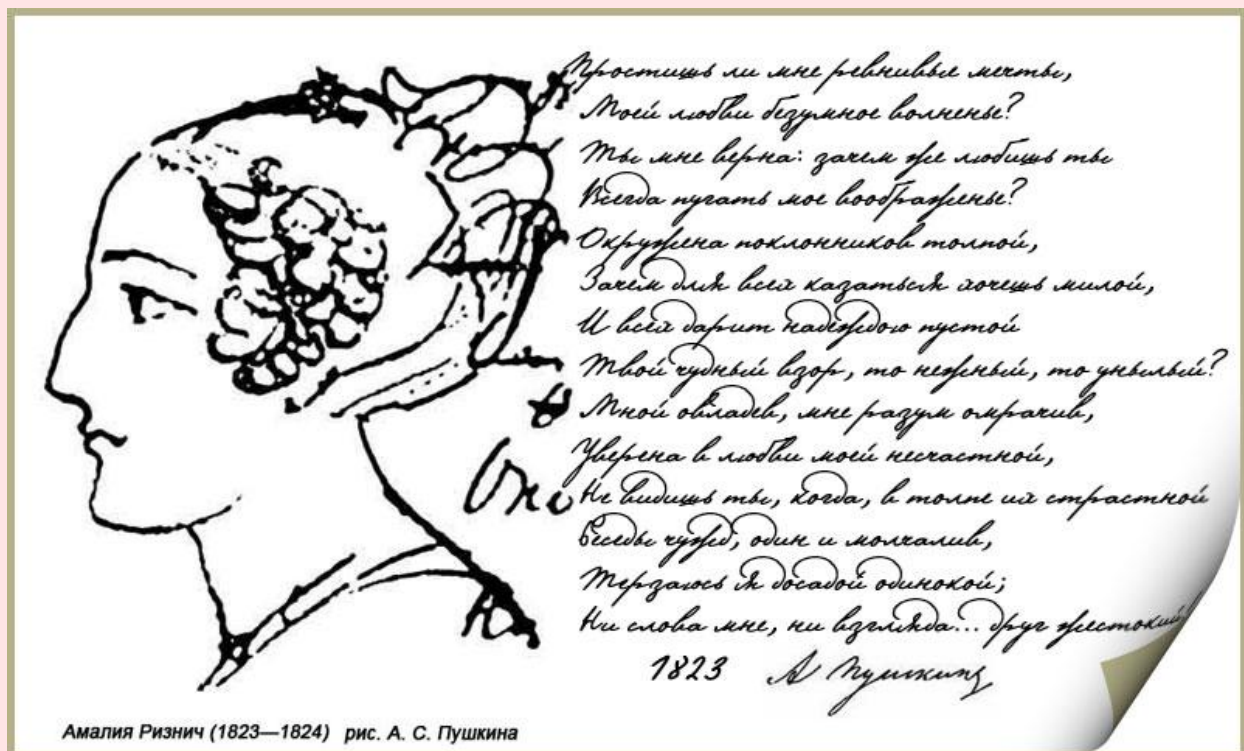 Простишь ли мне ревнивые мечты,
Моей любви безумное волненье?
Ты мне верна: зачем же любишь ты
Всегда пугать мое воображенье?
Окружена поклонников толпой,
Зачем для всех казаться хочешь милой,
И всех дарит надеждою пустой
Твой чудный взор, то нежный, то унылый?
Мной овладев, мне разум омрачив,
Уверена в любви моей несчастной,
Не видишь ты, когда, в толпе их страстной
Беседы чужд, один и молчалив,
Терзаюсь я досадой одинокой;
Ни слова мне, ни взгляда... друг жестокий
1823 А Пушкинъ
Амалия Ризнич (1823—1824) рис. А. С. Пушкина